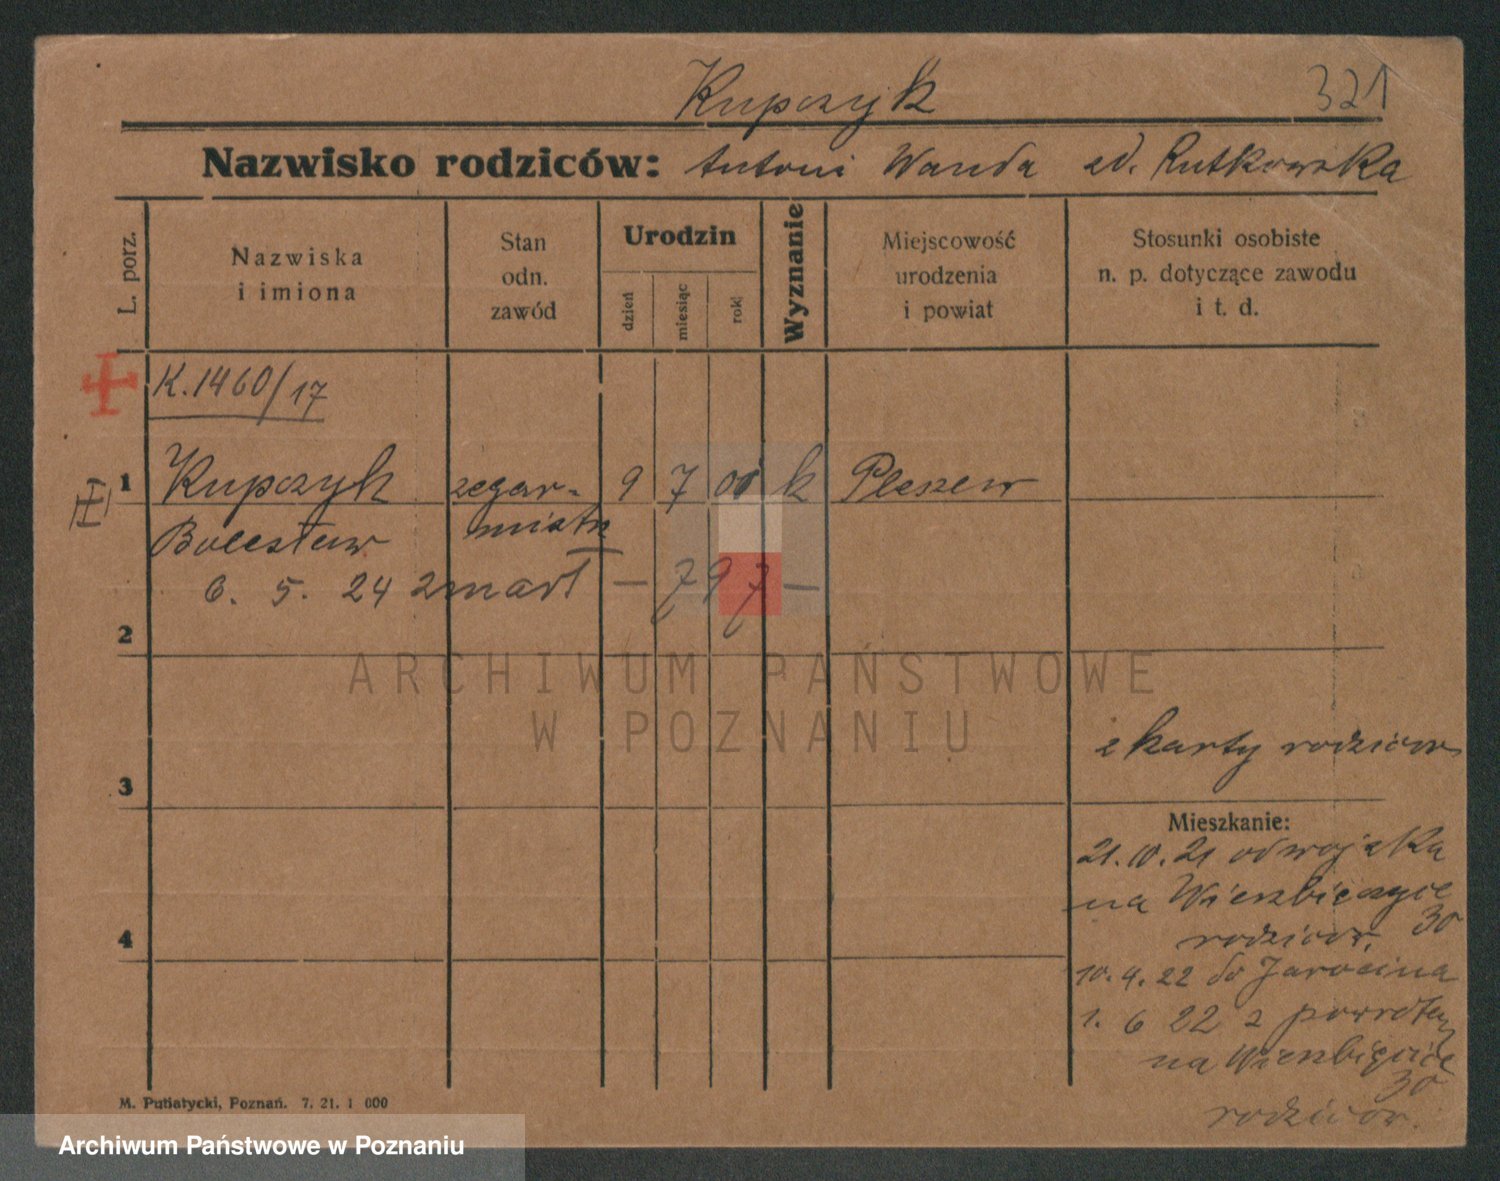 Kupczyk 321
Nazwisko rodziców: Antoni Wanda zd. Rutkowska
L. porz.
Nazwiska
i imiona
Stan
odn.
zawód
Urodzin
dzień
miesiąc
rok
Wyznanie
Miejscowość
urodzenia
i powiat
Stosunki osobiste
n. p. dotyczące zawodu
i t. d.
K. 1460/17
1 Kupczyk zegar- 9 7 01 k Pleszew
Bolesław mistrz
6. 5. 24 zmarł — 797 —
2
ARCHIWUM PAŃSTWOWE
W POZNANIU
z karty rodziców
3
Mieszkanie:
21.10.21 od wojska
na Wierzbięcice
30
rodziców.
4
10.4.22 do Jarocina
1. 6 22 z powrotem
na Wierzbięcice
30
rodziców.
M. Putiatycki, Poznań. 7. 21. 1 000
Archiwum Państwowe w Poznaniu